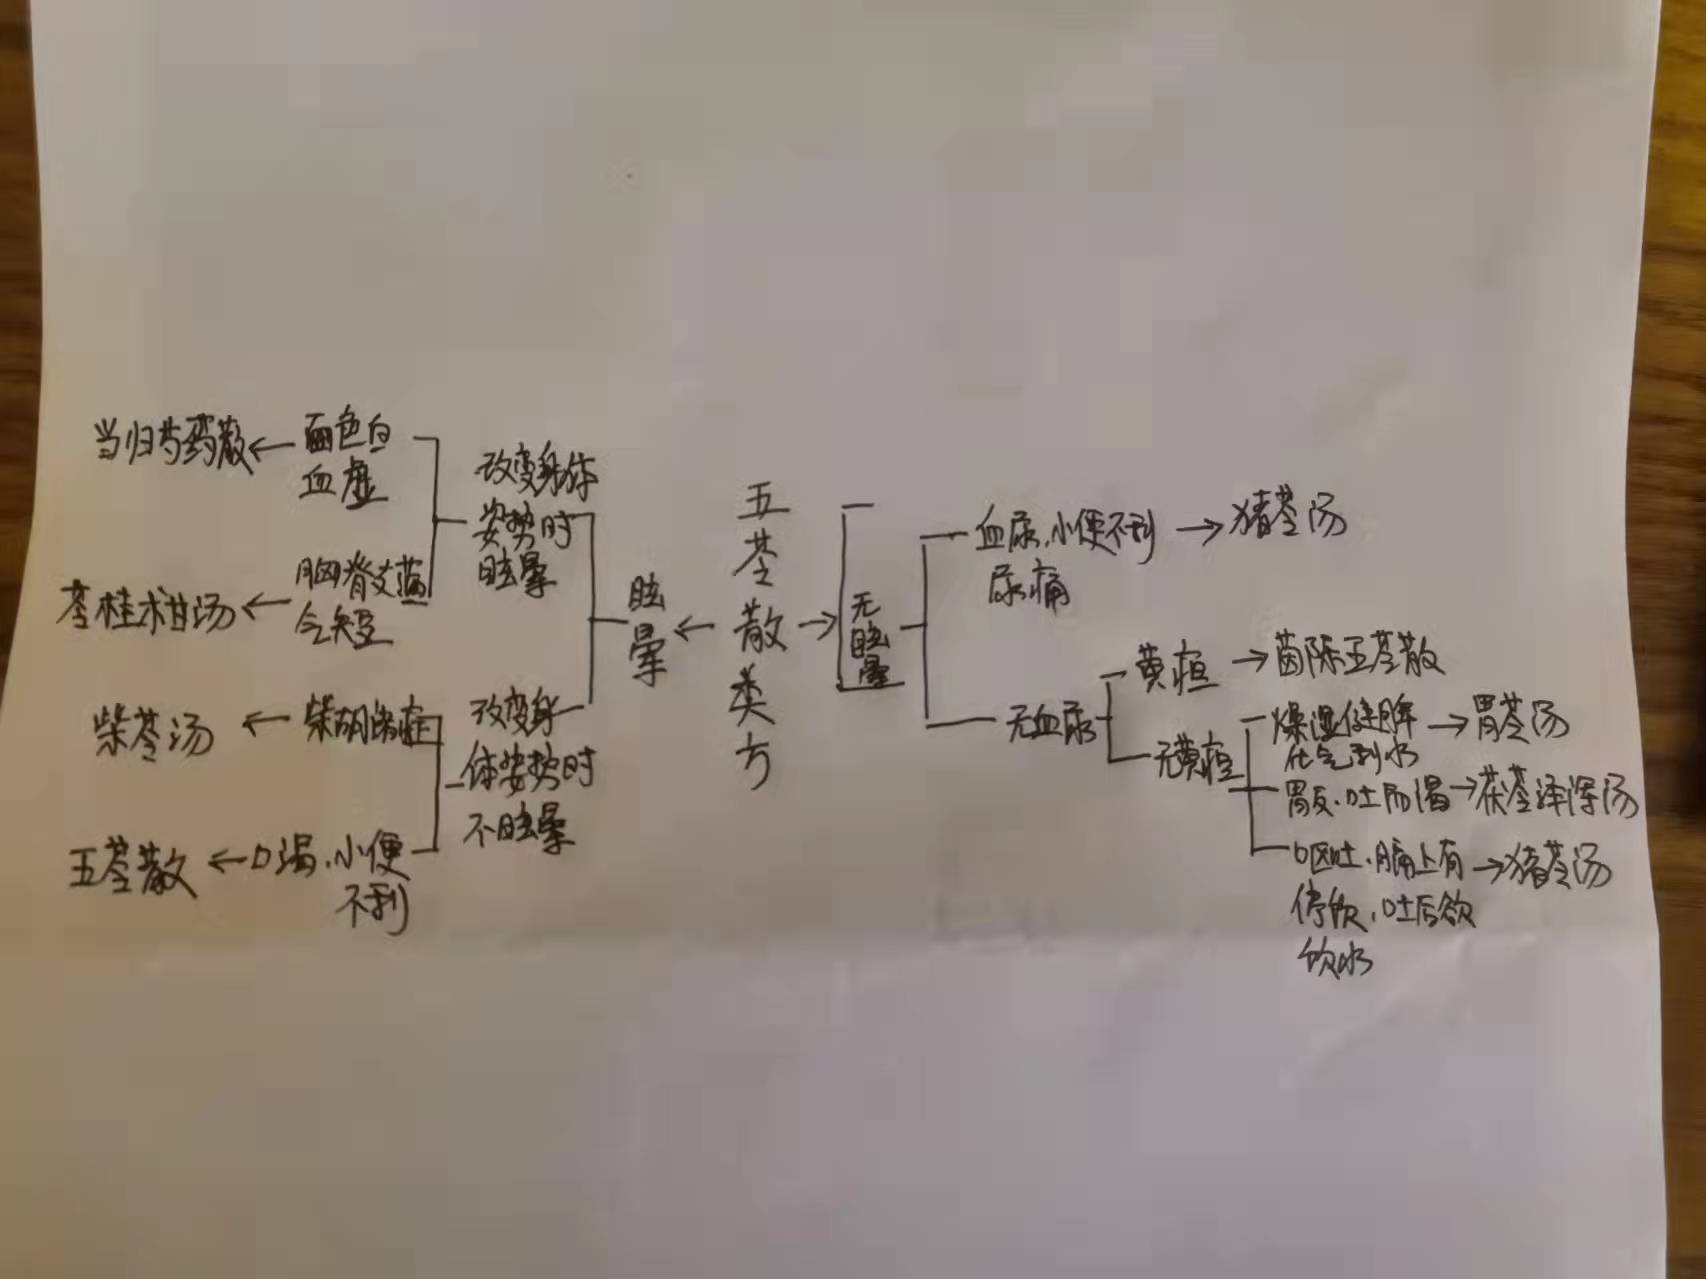 五苓散类方
眩晕
改变身体
姿势时
眩晕
面色白
血虚
当归芍药散
胸脊支
气短
苓桂术甘汤
改变身
体姿势时
不眩晕
柴胡
柴苓汤
口渴、小便
不利
五苓散
无眩晕
血尿、小便不利
尿痛
猪苓汤
无血尿
黄疸
茵陈五苓散
无黄疸
燥湿健脾
化气利水
胃苓汤
胃反、吐而渴
茯苓泽泻汤
呕吐、膈上有
停饮、吐后欲
饮水
猪苓汤